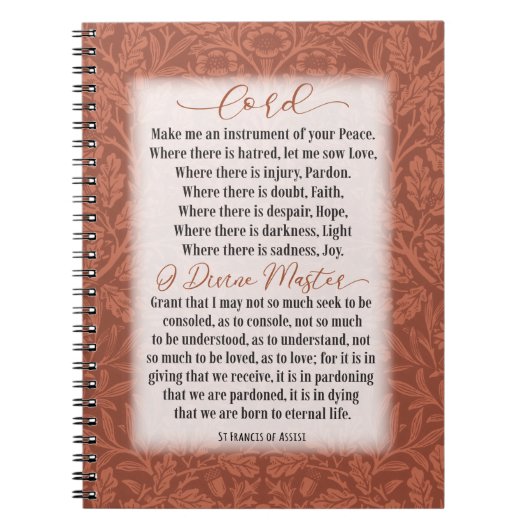 Lord
Make me an instrument of your Peace.
Where there is hatred, let me sow Love,
Where there is injury, Pardon.
Where there is doubt, Faith,
Where there is despair, Hope,
Where there is darkness, Light
Where there is sadness, Joy.
O Divine Master
Grant that I may not so much seek to be
consoled, as to console, not so much
to be understood, as to understand, not
so much to be loved, as to love; for it is in
giving that we receive, it is in pardoning
that we are pardoned, it is in dying
that we are born to eternal life.
St Francis of Assisi